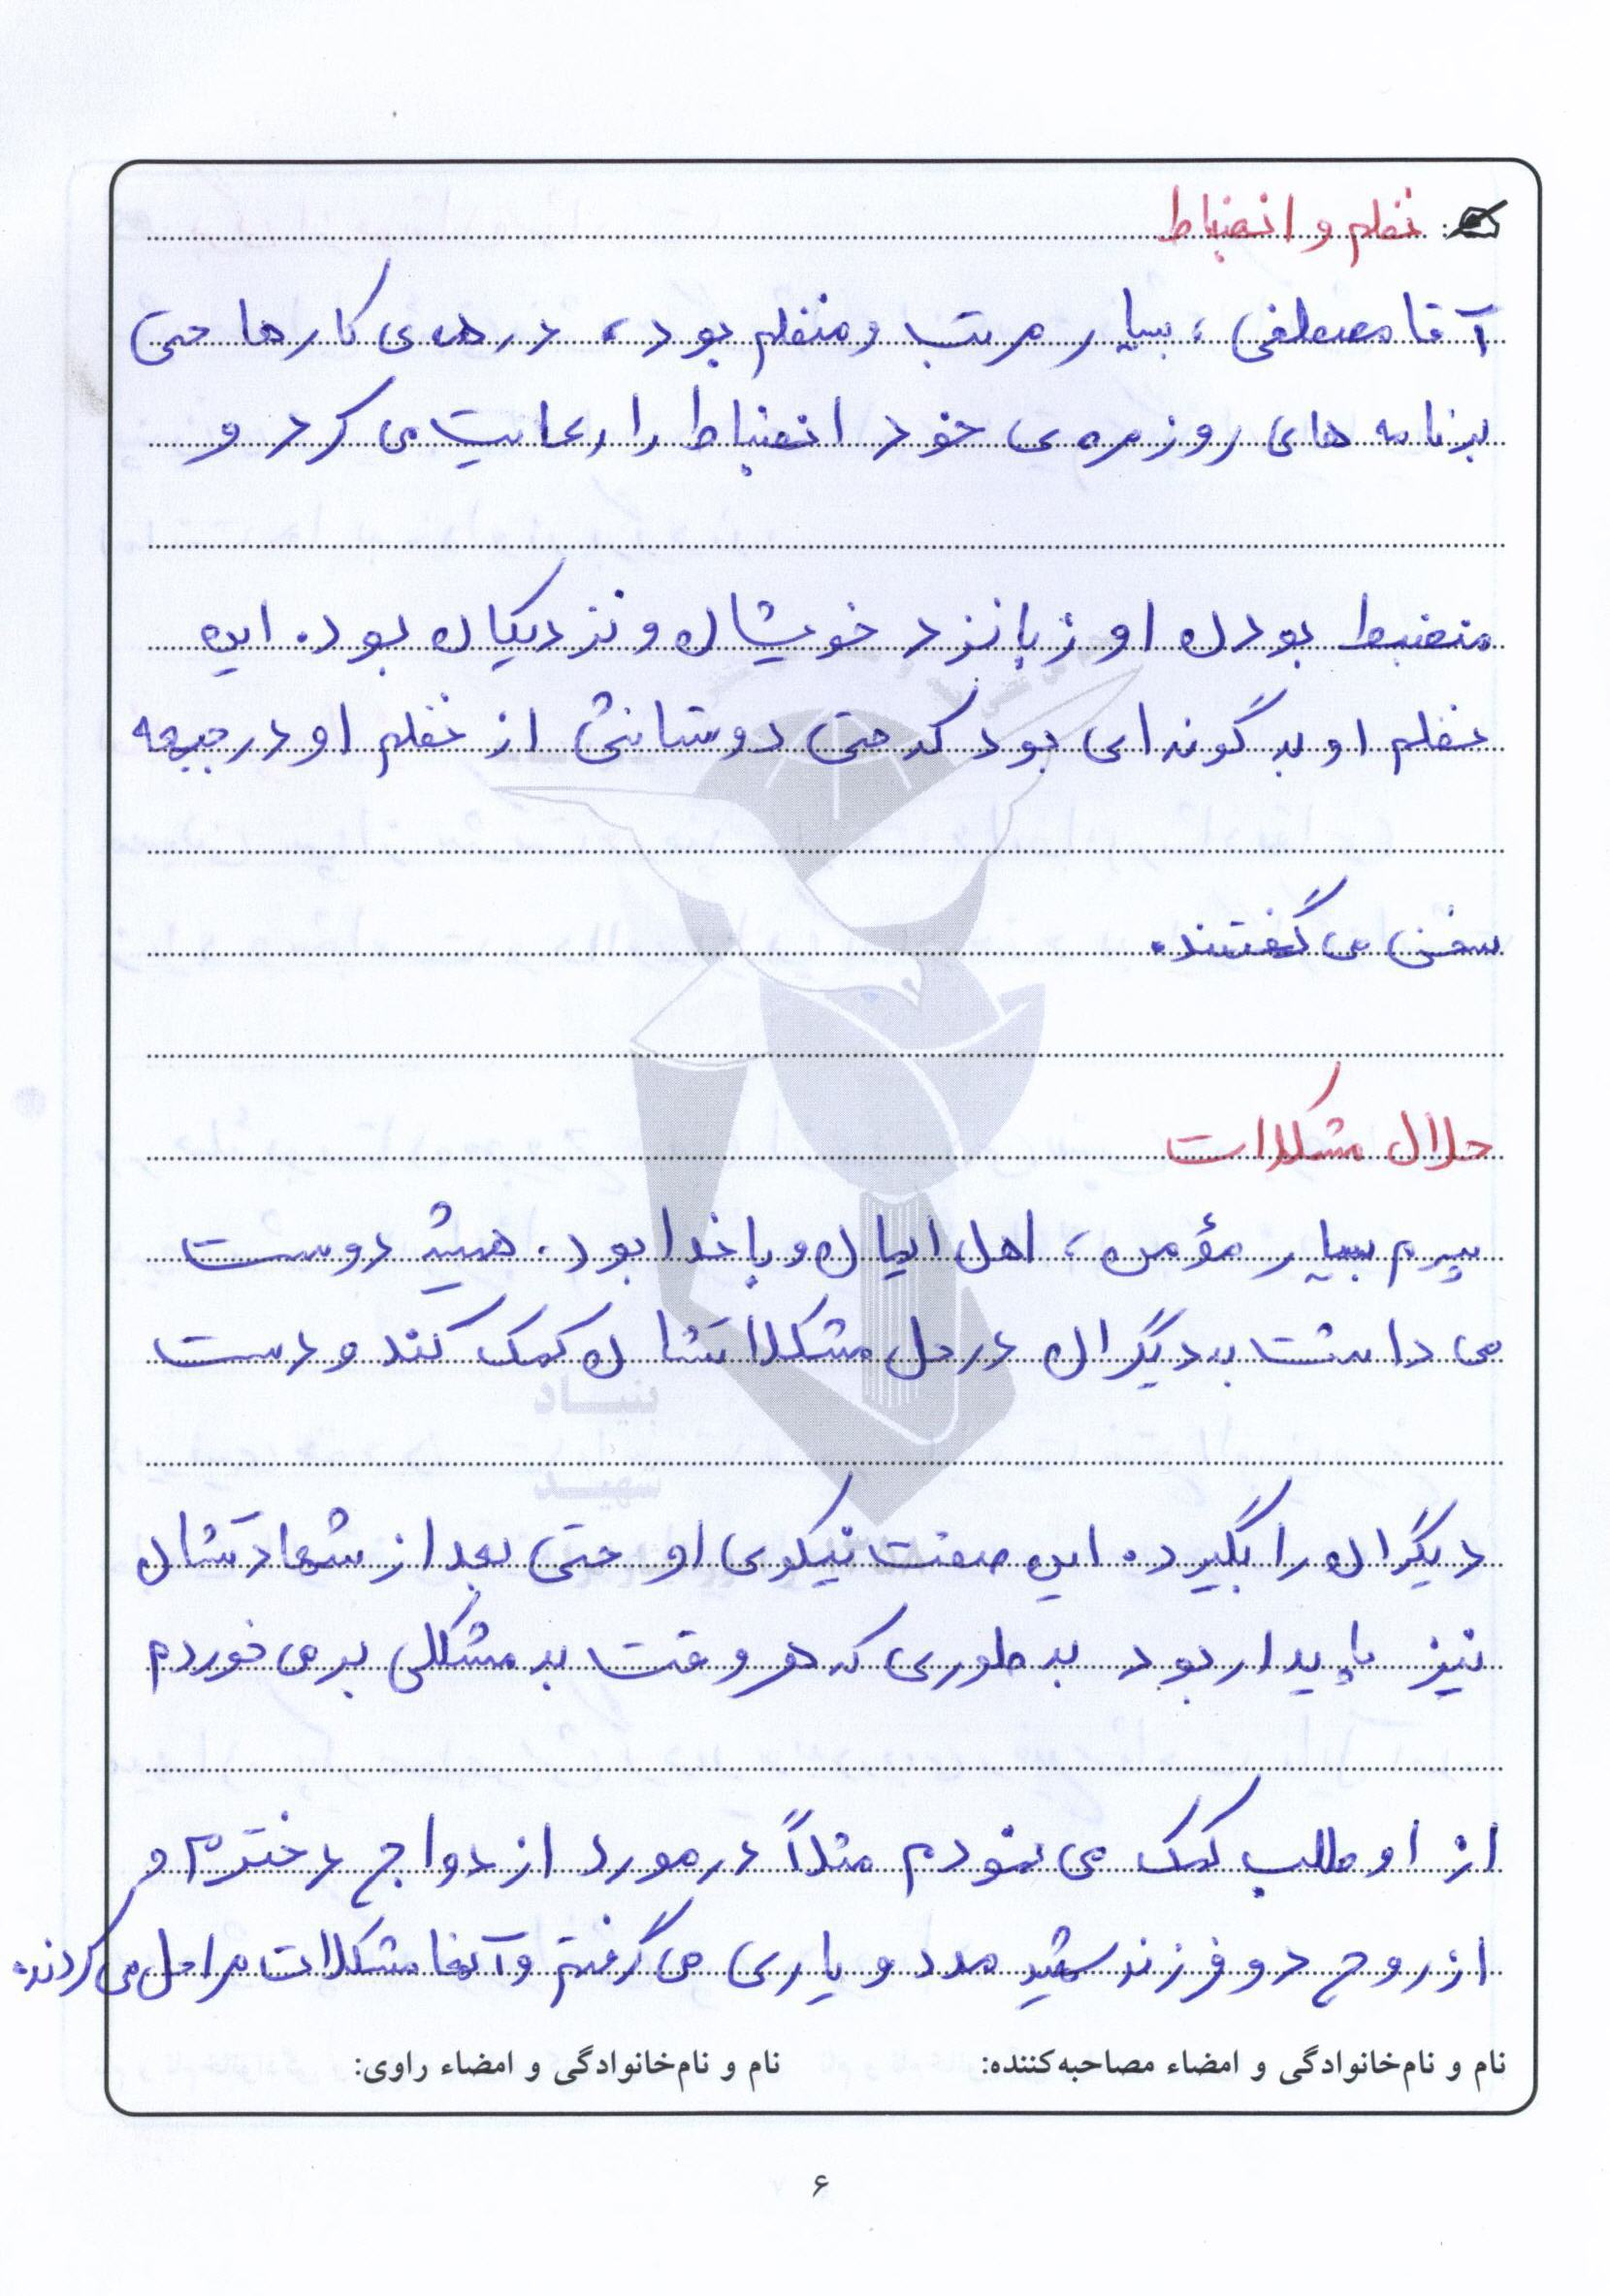 نظم و انضباط
آقا مصطفی، بسیار مرتب و منظم بود، در همه‌ی کارها حتی
برنامه های روزمره‌ی خود انضباط را رعایت می کرد و
منضبط بودن او زبانزد خویشان و نزدیکان بود. این
نظم او به گونه‌ای بود که حتی دوستانش از نظم او در جبهه
سخن می گفتند.
حلال مشکلات
پسرم بسیار مؤمن، اهل ایمان و با خدا بود. همیشه دوست
می داشت به دیگران در حل مشکلاتشان کمک کند و دست
بنیاد
شهید
دیگران را بگیرد. این صفت نیکوی او حتی بعد از شهادتشان
نیز پایدار بود به طوری که هر وقت به مشکلی بر می خوردم
از او طلب کمک می نمودم مثلاً در مورد ازدواج دخترم و
از روح دو فرزند شهید مدد و یاری می گرفتم و آنها مشکلات مرا حل می کردند.
نام و نام‌خانوادگی و امضاء مصاحبه‌کننده: نام و نام‌خانوادگی و امضاء راوی:
۶